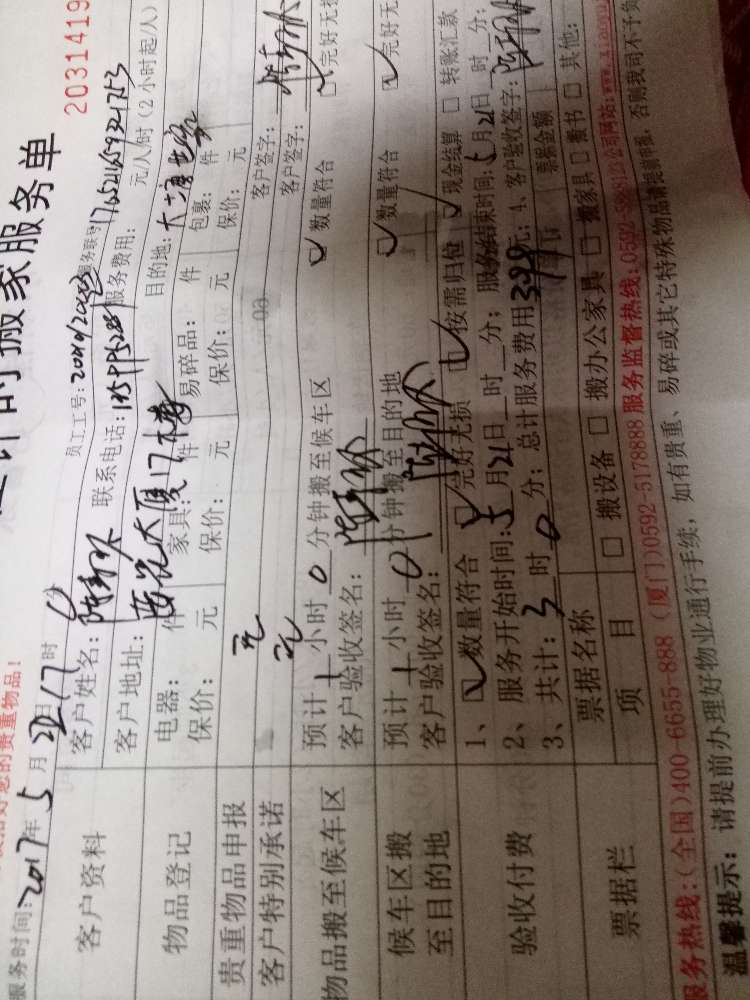 搬家服务单
2031419
贵重物品!
服务时间:2017年5月21日17时0分
员工工号:
服务联号17652165932 1753
客户资料
客户姓名:
联系电话:
服务费用: 元/人/时(2小时起/人)
客户地址: 大厦门楼
目的地:
物品登记
电器: 件 家具: 件 易碎品: 件 包裹: 件
保价: 元 保价: 元 保价: 元 保价: 元
贵重物品申报
元
客户签字:
客户特别承诺
元
客户签字:
物品搬至候车区
预计1小时0分钟搬至候车区 数量符合 完好无损
客户验收签名:
候车区搬至目的地
预计1小时0分钟搬至目的地 数量符合 完好无
客户验收签名:
验收付费
1、数量符合 完好无损 按需归位 现金结算 转账汇款
2、服务开始时间:5月21日 时 分; 服务结束时间:5月21日 时 分;
3、共计:3时0分; 总计服务费用399元; 4、客户验收签字:
票据栏
票据名称 票据金额
项目 搬设备 搬办公家具 搬家具 搬书 其他:
服务热线:(全国)400-6655-888 (厦门)0592-5178888 服务监督热线:0592- 公司网站:www.
温馨提示: 请提前办理好物业通行手续, 如有贵重、易碎或其它特殊物品请提前申报, 否则我司不予负